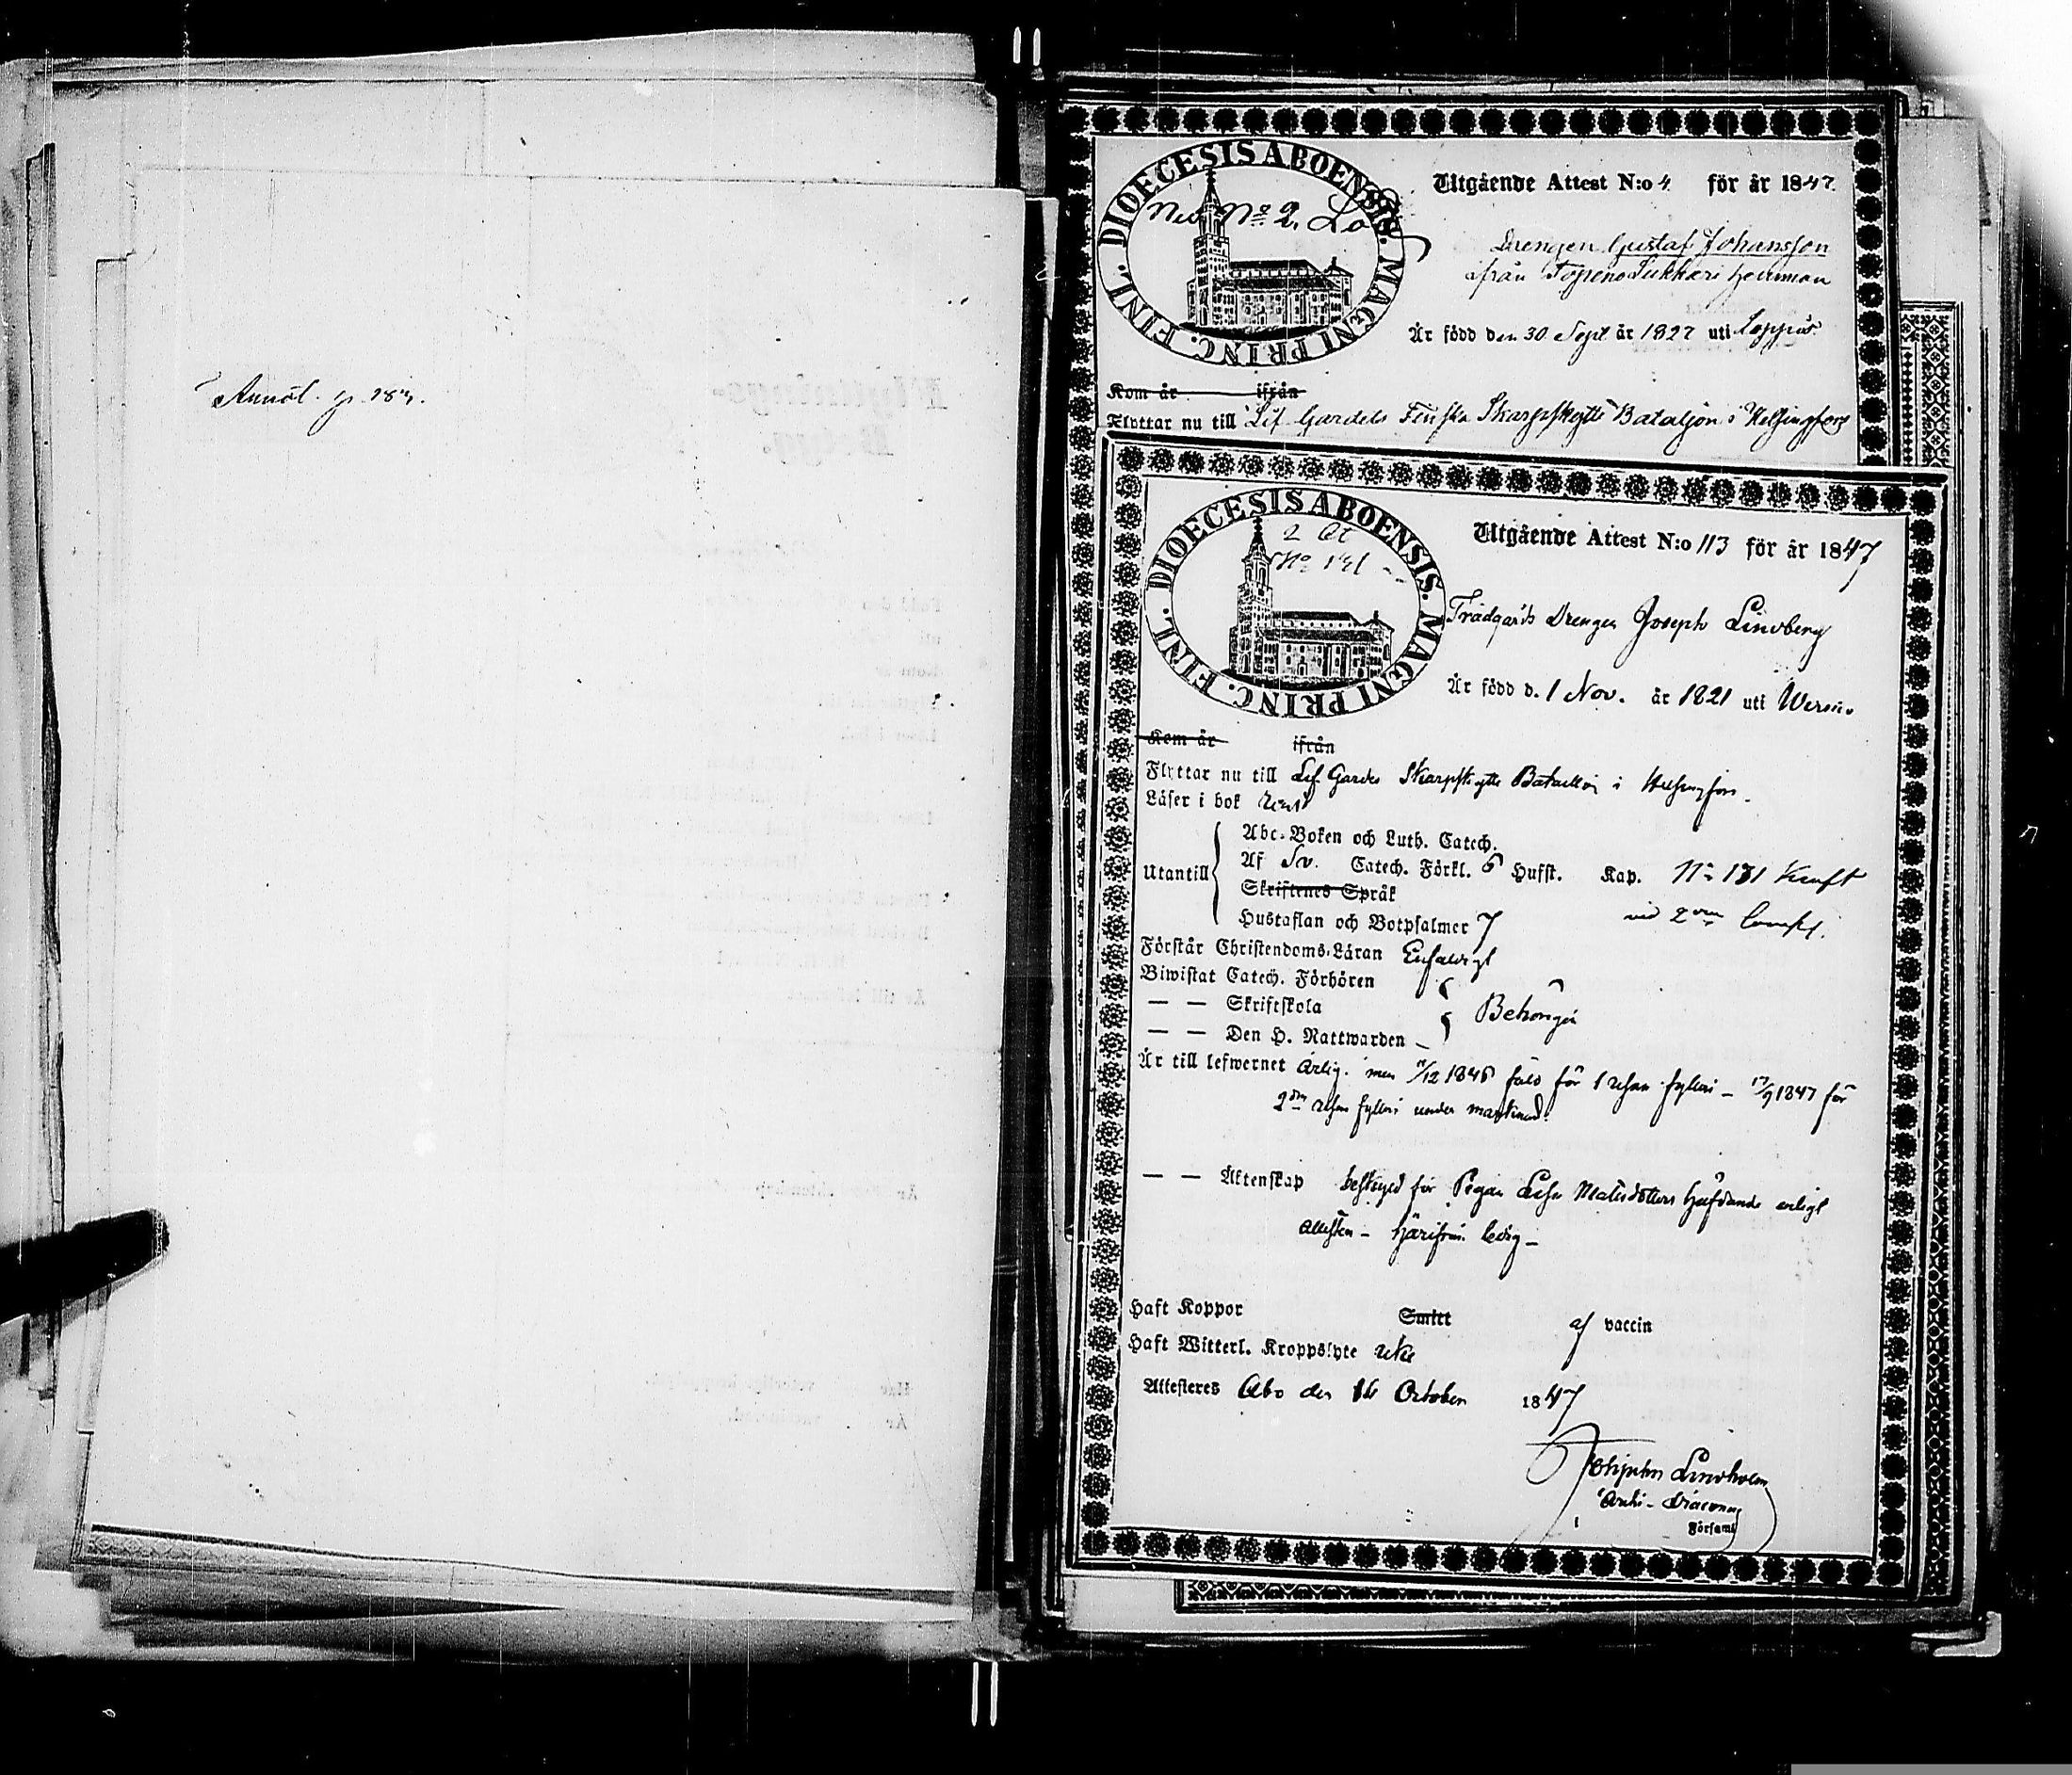 Annot. p. 187.
DIOECESIS ABOENSIS. MAGNI PRINC. FINL.
No 2. Lo
Utgående Attest N:o 4 för år 1847.
Drengen Gustaf Johansson
ifrån Topeno Sukkari hemman
Är född den 30 Sept år 1827 uti Loppis
Kom år ifrån
Flyttar nu till Lif Gardets Finska Skarpskytte Bataljon i Helsingfors
DIOECESIS ABOENSIS. MAGNI PRINC. FINL.
Utgående Attest N:o 113 för år 1847
Trädgårds Drengen Joseph Lindberg
Är född d. 1 Nov. år 1821 uti Wirmo
Kom år ifrån
Flyttar nu till Lif Gardes Skarpskytte Bataillon i Helsingfors.
Läser i bok rent
Abc-Boken och Luth. Catech.
Utantill Af Sv. Catech. Förkl. 6 Hufst. Kap. No 131
Skriftenes Språk
Hustaflan och Botpsalmer 7 vid 2
Förstår Christendoms-Läran Enfaldigt
Biwistat Catech. Förhören
— — Skriftskola Behörigen
— — Den H. Nattwarden
Är till lefwernet ärlig. men /12 1846 fäld för 1 resan fylleri – 17/9 1847 för
2dra resan fylleri under marknad.
— — Äktenskap för Pigan Lisa Matsdotters häfdande enligt
attesten – härifrån ledig –
Haft Koppor Smitt af vaccin
Haft Witterl. Kroppslyte icke
Attesteres Åbo den 16 October 1847
Lindholm
Archi-Diaconus
Församl